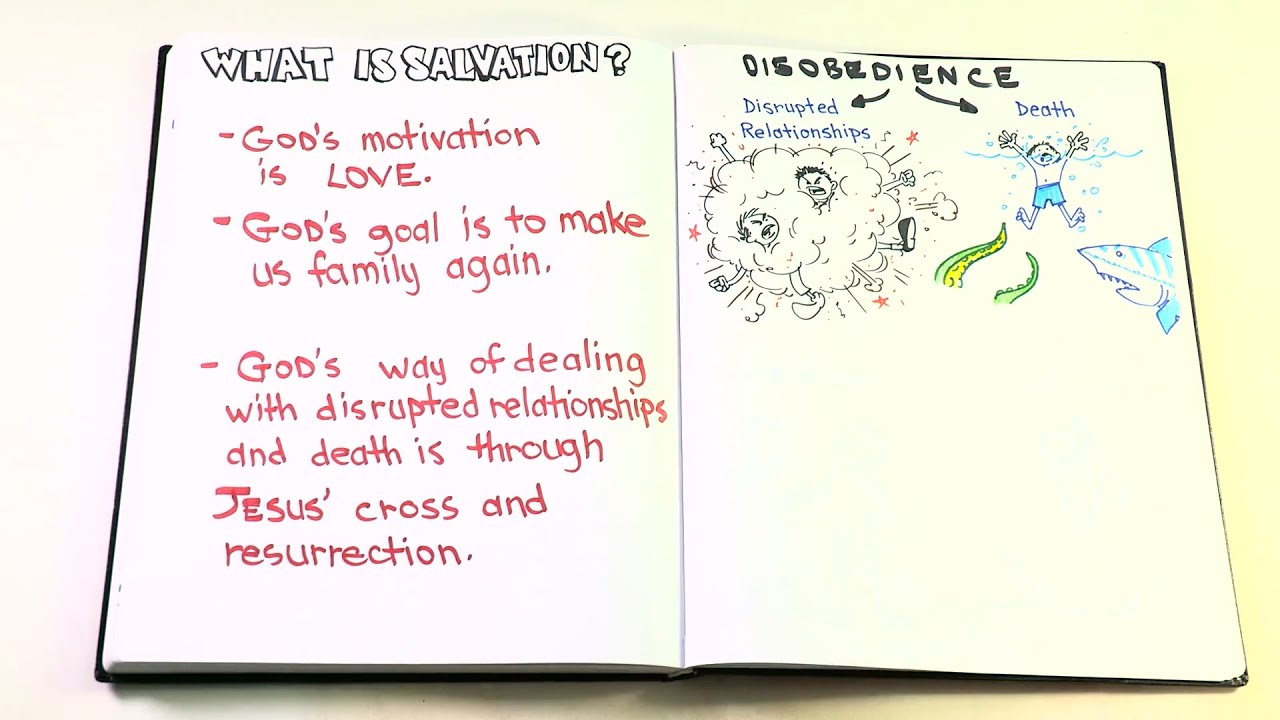 WHAT IS SALVATION?
- GOD'S motivation
is LOVE.
- GOD'S goal is to make
us family again.
- GOD'S way of dealing
with disrupted relationships
and death is through
JESUS' cross and
resurrection.
DISOBEDIENCE
Disrupted
Relationships
Death